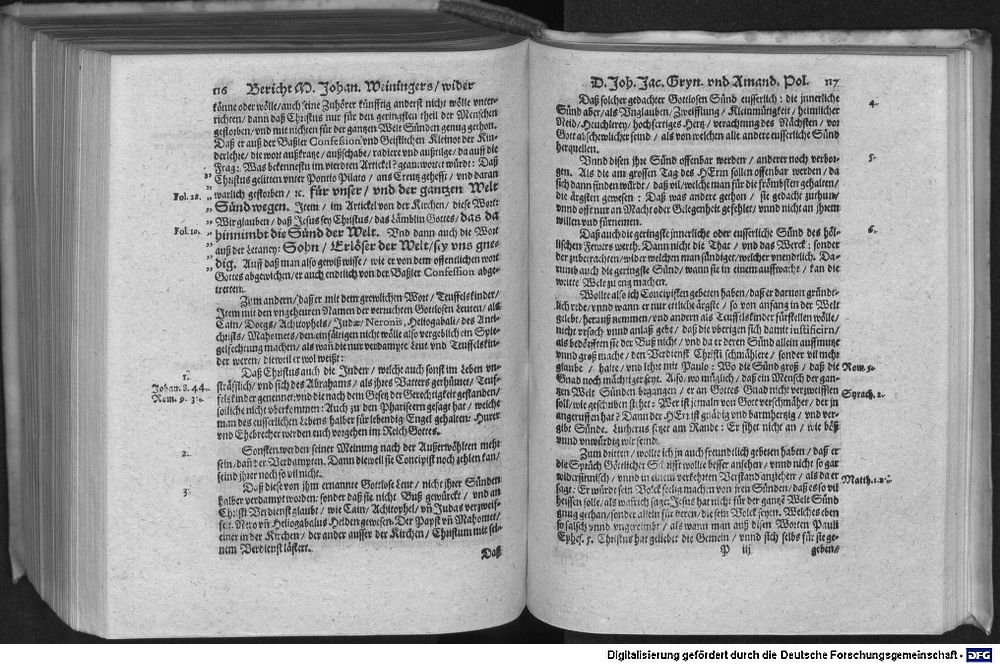 116 Bericht M. Johan. Weiningers / wider
könne oder wölle / auch seine Zuhörer künfftig anderst nicht wölle vnter-
richten / dann daß Christus nur für den geringsten theil der Menschen
gestorben / vnd mit nichten für der gantzen Welt Sünden genug gethon.
Daß er auß der Baßler Confession vnd Geistlichen Kleinot der Kin-
derlehre / die wort außkratze / außschabe / radiere vnd außtilge / da auff die
Frag: Was bekennestu im vierdten Artickel? geantwortet würdt: Daß
„ Christus gelitten vnter Pontio Pilato / ans Creutz gehefft / vnd daran
Fol. 28. „ warlich gestorben / ꝛc. für vnser / vnd der gantzen Welt
„ Sünd wegen. Item / im Artickel von der Kirchen / diese Wort:
„ Wir glauben / daß Jesus sey Christus / das Lämblin Gottes / das da
Fol. 10. „ hinnimbt die Sünd der Welt. Vnd dann auch die Wort
„ auß der Letaney: Sohn / Erlöser der Welt / sey vns gne-
„ dig. Auff daß man also gewiß wisse / wie er von dem offentlichen wort
Gottes abgewichen / er auch endtlich von der Baßler Confession abge-
tretten.
Zum andern / daß er mit dem grewlichen Wort / Teuffelskinder /
Item mit den vngeheuren Namen der verruchten Gottlosen Leuten / als
Cain / Doegs / Achitophels / Judæ / Neronis, Heliogabali / des Anti-
christs / Mahomets / den einfältigen nicht wölle also vergeblich ein Spie-
gelfechtung machen / als wañ die nur verdampte Leut vnd Teuffelskin-
der weren / dieweil er wol weißt:
1. Daß Christus auch die Juden / welche auch sonst im Leben vn-
Johan. 8. 44. sträfflich / vnd sich des Abrahams / als ihres Vatters gerhümet / Teuf-
Rom. 9. 31. felskinder genennet: vnd die nach dem Gesetz der Gerechtigkeit gestanden /
solliche nicht vberkommen: Auch zu den Phariseern gesagt hat / welche
man des eusserlichen Lebens halber für lebendig Engel gehalten: Hurer
vnd Ehebrecher werden euch vorgehen im Reich Gottes.
2. Sonsten werden seiner Meinung nach der Außerwöhlten mehr
sein / dañ der Verdampten. Dann dieweil sie Concipist noch zehlen kan /
seind ihrer noch so vil nicht.
3. Daß diese von ihm ernannte Gottlose Leut / nicht ihrer Sünden
halber verdampt worden: sonder daß sie nicht Buß gewürckt / vnd an
Christi Verdienst glaubt / wie Cain / Achitophel / vñ Judas verzweif-
felt. Nero vñ Heliogabalus Heiden gewesen. Der Papst vñ Mahomet /
einer in der Kirchen / der ander ausser der Kirchen / Christum mit sei-
nem Verdienst lästert.
Daß
D. Joh. Jac. Gryn. vnd Amand. Pol. 117
Daß solcher gedachter Gottlosen Sünd eusserlich: die jnnerliche 4.
Sünd aber / als Vnglauben / Zweifflung / Kleinmütigkeit / heimlicher
Neid / Heuchlerey / hochfertiges Hertz / verachtung des Nächsten / vor
Gott abschewlicher seind / als von welchen alle andere eusserliche Sünd
herquellen.
Vnnd disen ihre Sünd offenbar werden / anderer noch verbor- 5.
gen. Als die am grossen Tag des HErrn sollen offenbar werden / da
sich dann finden würdt / daß vil / welche man für die frömbsten gehalten /
die ärgsten gewesen: Daß was andere gethon / sie gedacht zuthun /
vnnd offt nur an Macht oder Gelegenheit gefehlet / vnnd nicht an ihrem
willen vnd fürnemen.
Daß auch die geringste jnnerliche oder eusserliche Sünd des höl- 6.
lischen Fewrs werth. Dann nicht die That / vnd das Werck: sonder
der zubetrachten / wider welchen man sündiget / welcher vnendtlich. Da-
rumb auch die geringste Sünd / wann sie in einem auffwacht / kan die
weitte Welt zu eng machen.
Wollte also ich Concipisten gebeten haben / daß er daruon gründt-
lich rede / vnnd wann er nur etliche ärgste / so von anfang in der Welt
gelebt / herauß nemmen / vnd andern als Teuffelskinder fürstellen wölle /
nicht vrsach vnnd anlaß gebe / daß die vberigen sich damit iustificiern /
als bedörfften sie der Buß nicht / vnd da er deren Sünd allein auffmutze
vnnd groß mache / den Verdienst Christi schmählere / sonder vil mehr
glaube / halte / vnd lehre mit Paulo: Wo die Sünd groß / daß die Rom. 5.
Gnad noch mächtiger seye. Also / wo müglich / daß ein Mensch der gan-
tzen Welt Sünden begangen / er an Gottes Gnad nicht verzweifflen
soll / wie geschriben stehet: Wer ist jemaln von Gott verschmähet / der jn Syrach. 2.
angeruffen hat? Dann der HErr ist gnädig vnd barmhertzig / vnd ver-
gibt Sünde. Lutherus setzet am Rande: Er sihet nicht an / wie böß
vnnd vnwürdig wir seind.
Zum dritten / wollte ich jn auch freundtlich gebeten haben / daß er
die Sprüch Göttlicher Schrifft wollte besser ansehen / vnnd nicht so gar
widersinnisch / vnnd in einem verkehrten Verstand anziehen / als da er
sagt: Er würdt sein Volck seelig machen von jren Sünden / daß es so vil Matth. 1.
heissen solle / als wañ ich sagte: Jesus hat nicht für der gantzẽ Welt Sünd
gnug gethan / sonder allein für deren / die sein Volck seyen. Welches eben
so falsch vnnd vngereimbt / als wann man auß disen Worten Pauli
Ephes. 5. Christus hat geliebet die Gemein / vnnd sich selbs für sie ge-
P iij geben /
Digitalisierung gefördert durch die Deutsche Forschungsgemeinschaft - DFG